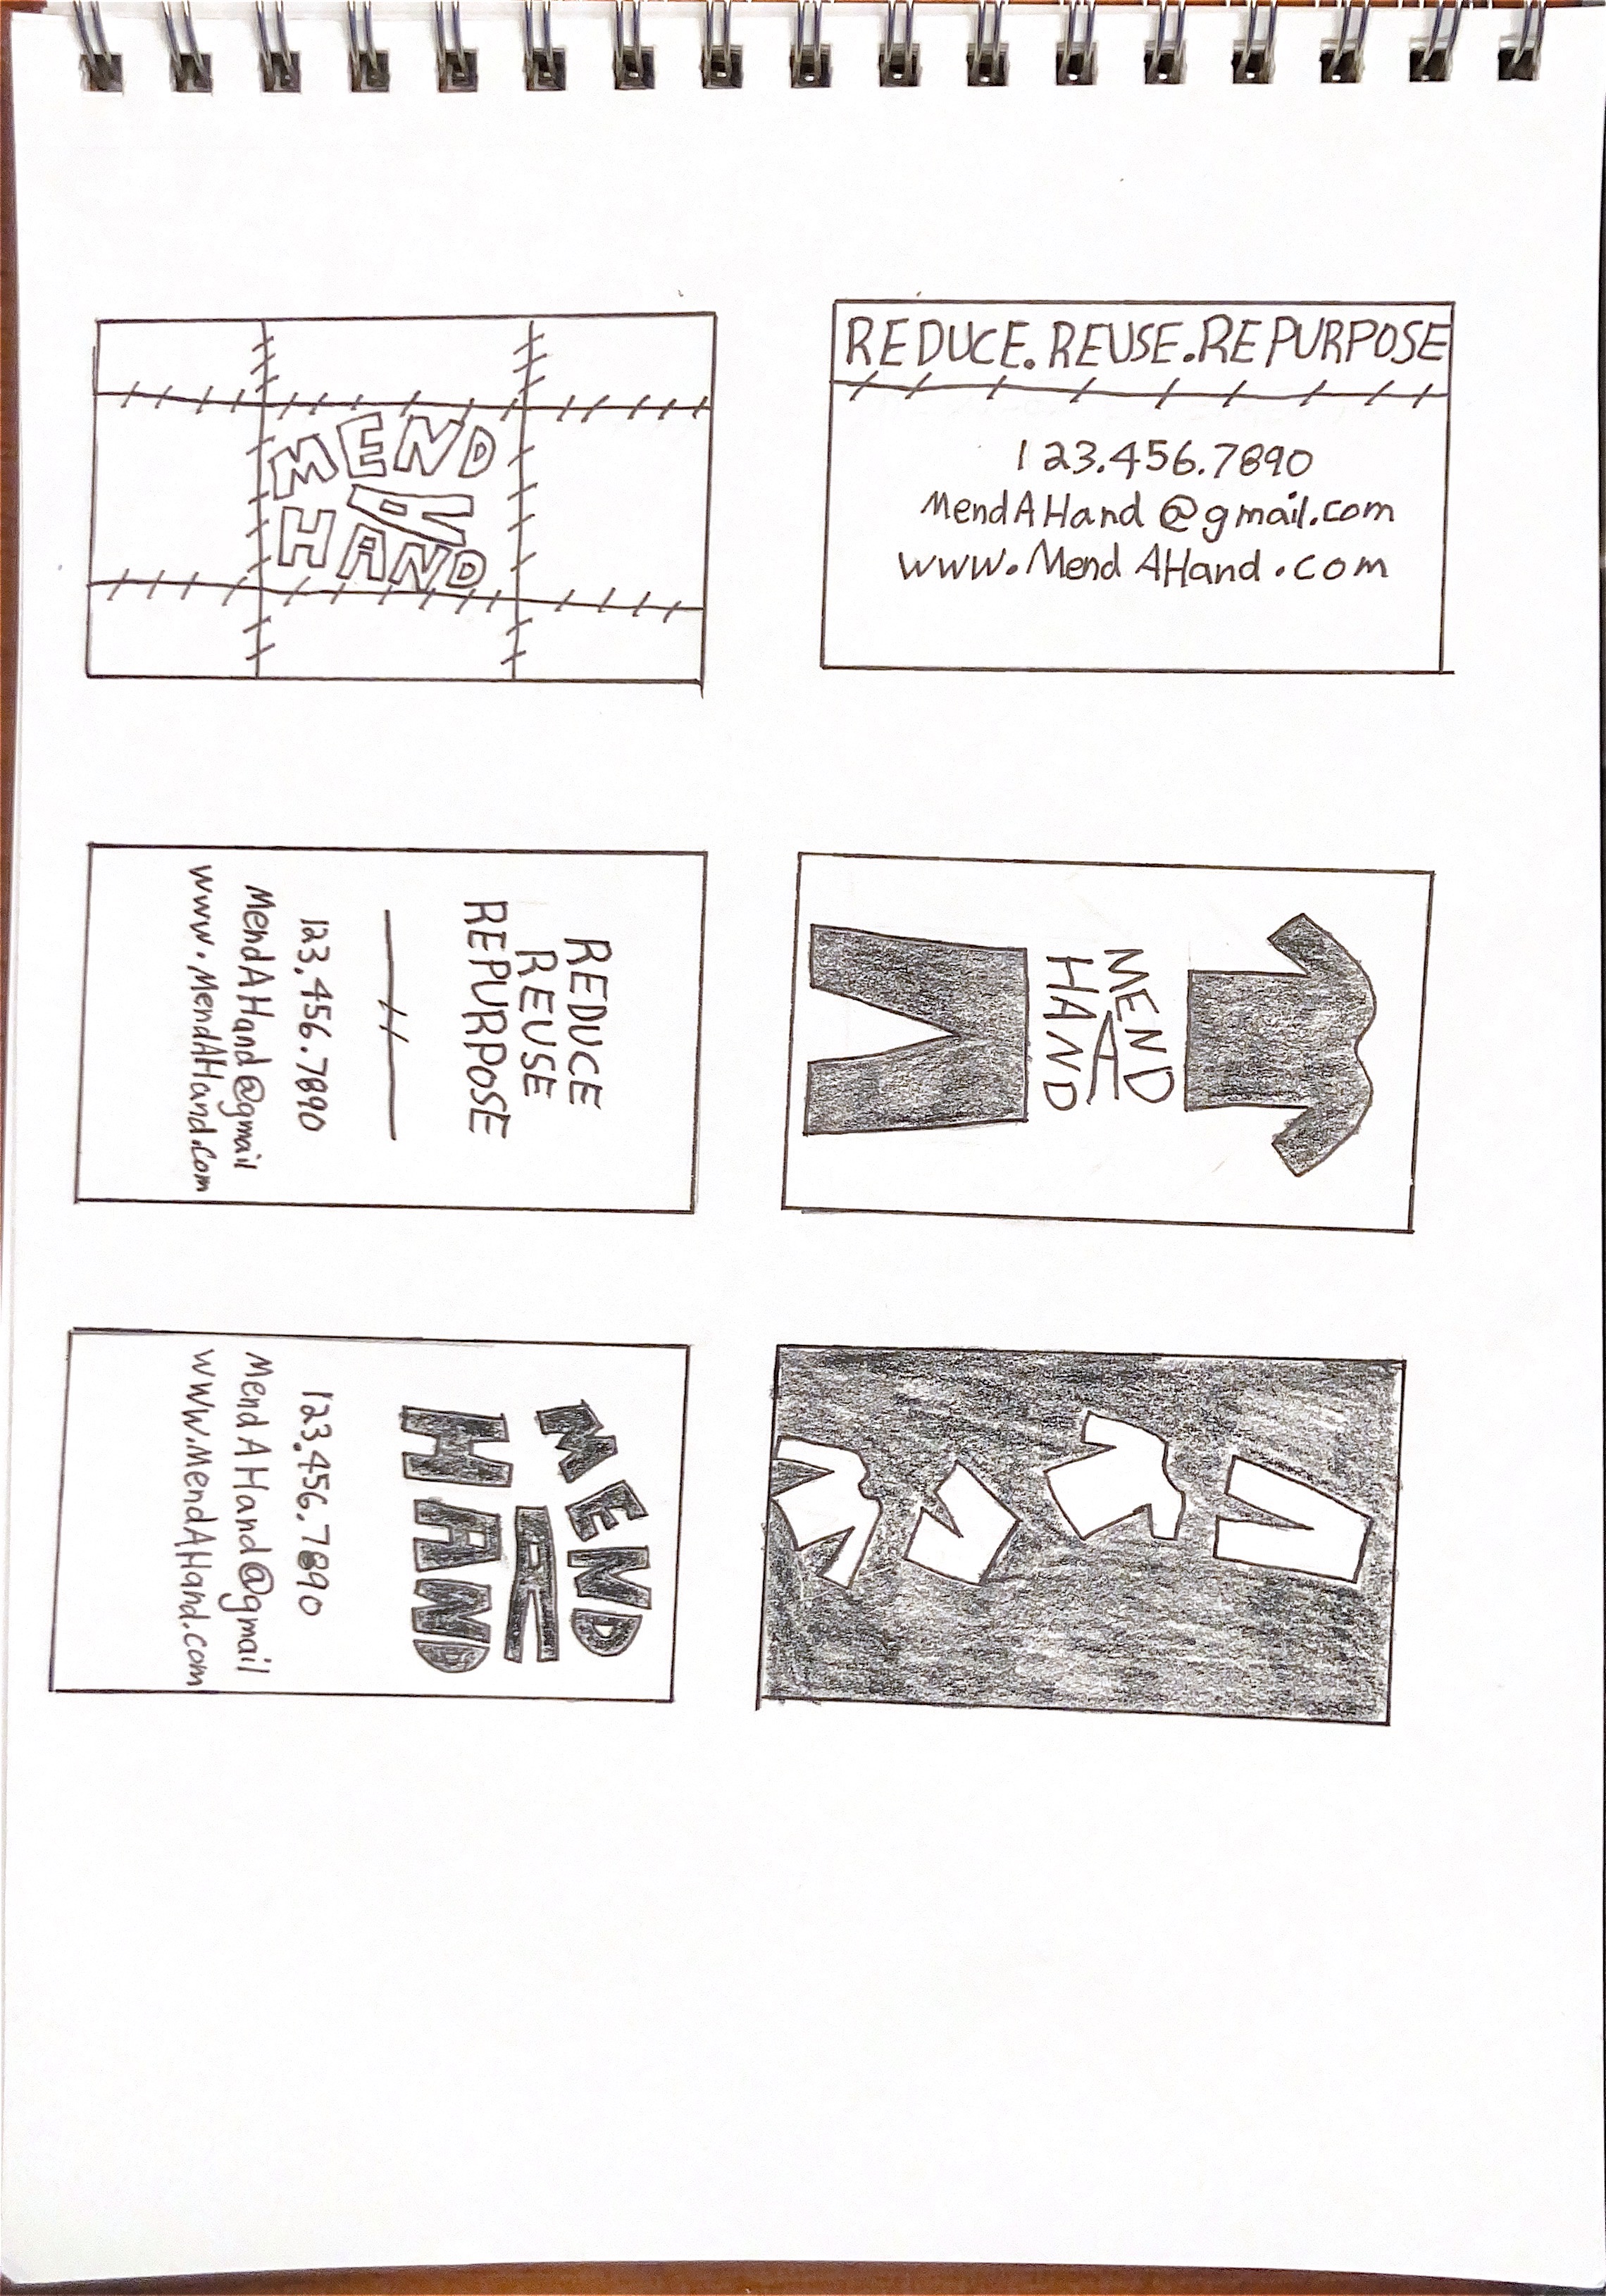 MEND
A
HAND
REDUCE.REUSE.REPURPOSE
123.456.7890
MendAHand@gmail.com
www.MendAHand.com
REDUCE
REUSE
REPURPOSE
123.456.7890
MendAHand@gmail
www.MendAHand.com
MEND
A
HAND
MEND
A
HAND
123.456.7890
MendAHand@gmail
www.MendAHand.com